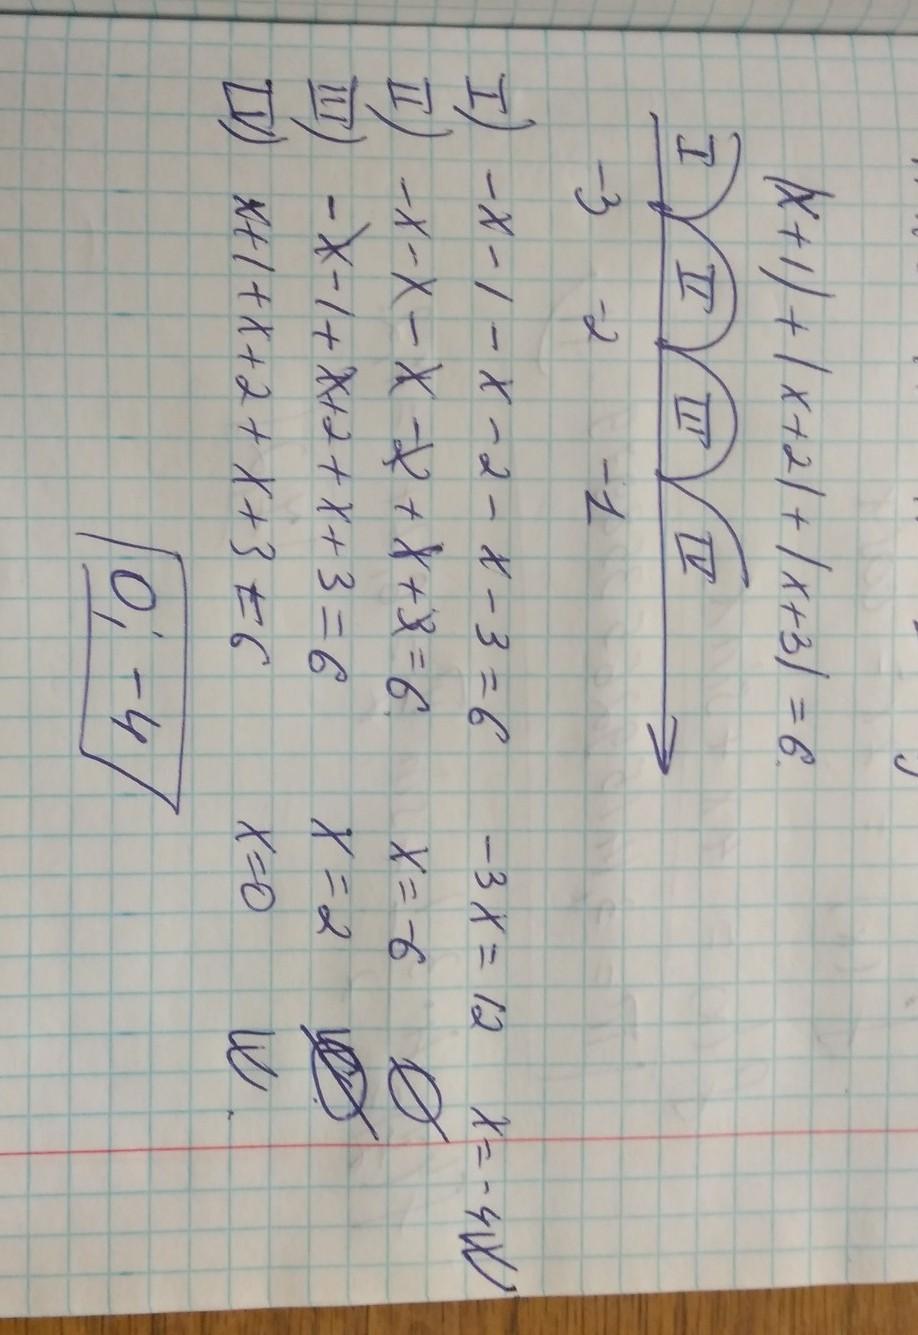 |x+1|+|x+2|+|x+3|=6
I II III IV
-3 -2 -1
I) -x-1-x-2-x-3=6 -3x=12 x=-4 И
II) -x-x-x-2+x+3=6 x=-6 ∅
III) -x-1+x+2+x+3=6 x=2 ∅
IV) x+1+x+2+x+3=6 x=0 И.
0; -4